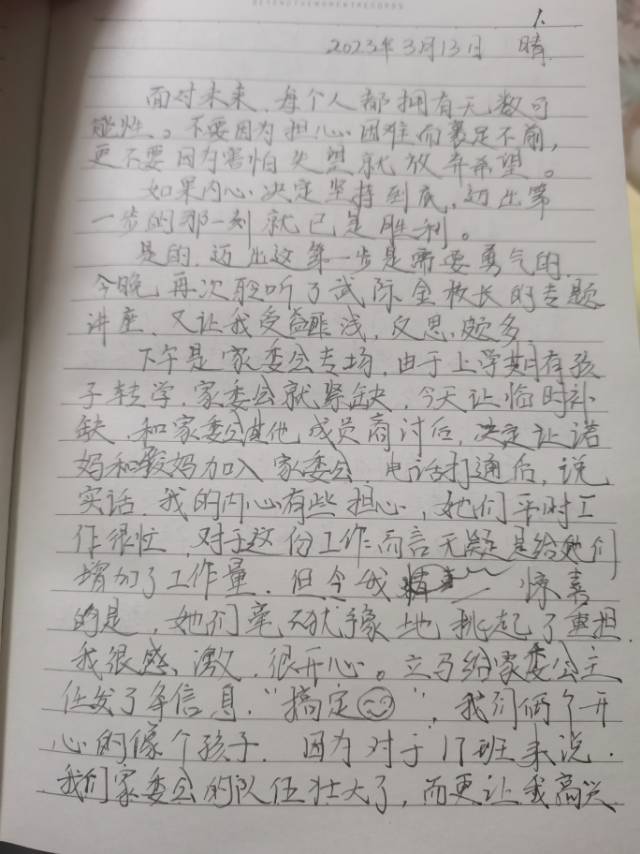 BEYOND THE MOMENT RECORDS
1.
2023年3月13日 晴
面对未来,每个人都拥有无数可
能性。不要因为担心困难而裹足不前,
更不要因为害怕失望就放弃希望。
如果内心决定坚持到底,迈出第
一步的那一刻就已是胜利。
是的,迈出这第一步是需要勇气的,
今晚,再次聆听了武际金校长的专题
讲座,又让我受益匪浅,反思颇多。
下午是家委会专场,由于上学期有孩
子转学,家委会就紧缺,今天让临时补
缺,和家委会其他成员商讨后,决定让诺
妈和毅妈加入家委会,电话打通后,说
实话,我的内心有些担心,她们平时工
作很忙,对于这份工作而言无疑是给她们
增加了工作量,但令我惊喜
的是,她们毫不犹豫地挑起了重担,
我很感激,很开心。立马给家委会主
任发了条信息,“搞定”,我们俩个开
心的像个孩子,因为对于17班来说,
我们家委会的队伍壮大了,而更让我高兴